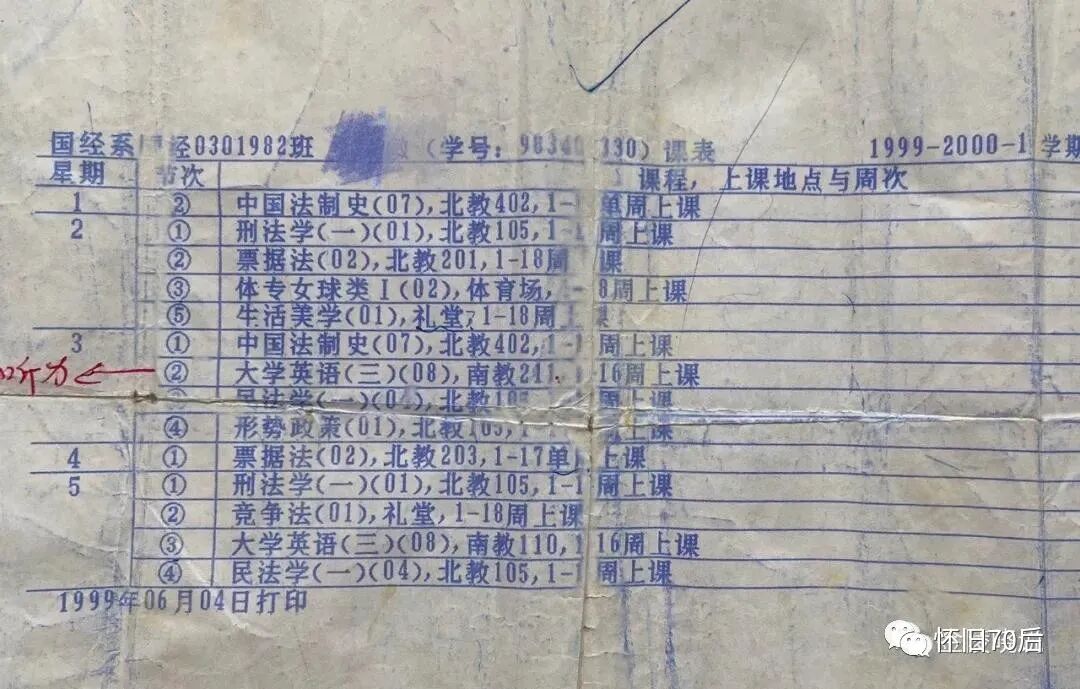 国经系 经0301982班 (学号: 9834 330) 课表 1999-2000-1 学期
星期 节次 课程, 上课地点与周次
1 ② 中国法制史(07), 北教402, 1- 单周上课
2 ① 刑法学(一)(01), 北教105, 1-1 周上课
② 票据法(02), 北教201, 1-18周 课
③ 体专女球类I(02), 体育场, 8周上课
⑤ 生活美学(01), 礼堂, 1-18周上
3 ① 中国法制史(07), 北教402, 1- 周上课
听力 ② 大学英语(三)(08), 南教241, 16周上课
民法学(一)(04), 北教105 周上课
④ 形势政策(01), 北教105, 1- 周上课
4 ① 票据法(02), 北教203, 1-17单 上课
5 ① 刑法学(一)(01), 北教105, 1-1 周上课
② 竞争法(01), 礼堂, 1-18周上课
③ 大学英语(三)(08), 南教110, 16周上课
④ 民法学(一)(04), 北教105, 1-1 周上课
1999年06月04日打印
怀旧70后